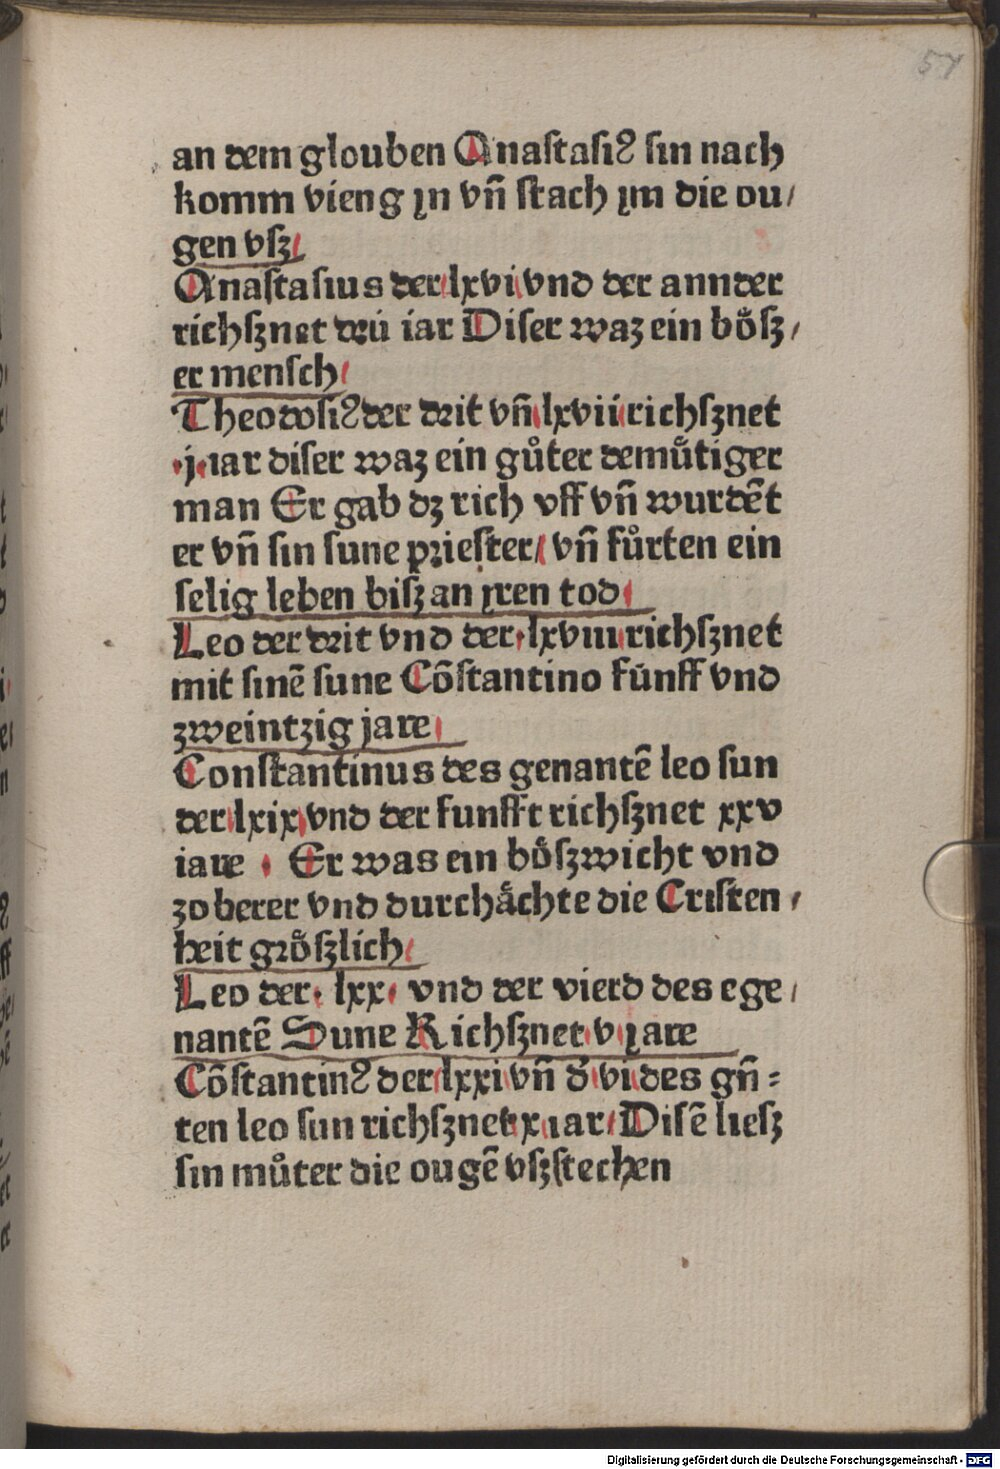 57
an dem glouben Anastasiꝰ sin nach
komm vieng jn vn̄ stach jm die ou/
gen vsz/
Anastasius der lxvi vnd der annder
richsznet drú iar Diser waz ein bo̊sz/
er mensch/
Theodosiꝰ der drit vn̄ lxvii richsznet
.j. iar diser waz ein gůter demůtiger
man Er gab dz rich vff vn̄ wurdēt
er vn̄ sin sune priester/ vn̄ fůrten ein
selig leben bisz an jren tod
Leo der drit vnd der lxviii richsznet
mit sinē sune Cōstantino fúnff vnd
zweintzig jare
Constantinus des genantē leo sun
der lxix vnd der funfft richsznet xxv
iare . Er was ein bo̊szwicht vnd
zoberer vnd durcha̋chte die Cristen/
heit gro̊szlich/
Leo der. lxx. vnd der vierd des ege/
nantē Sune Richsznet v jare
Cōstantinꝰ der lxxi vn̄ d̄ vi des gn̄=
ten leo sun richsznet x iar/ Disē liesz
sin můter die ougē vszstechen
Digitalisierung gefördert durch die Deutsche Forschungsgemeinschaft - DFG